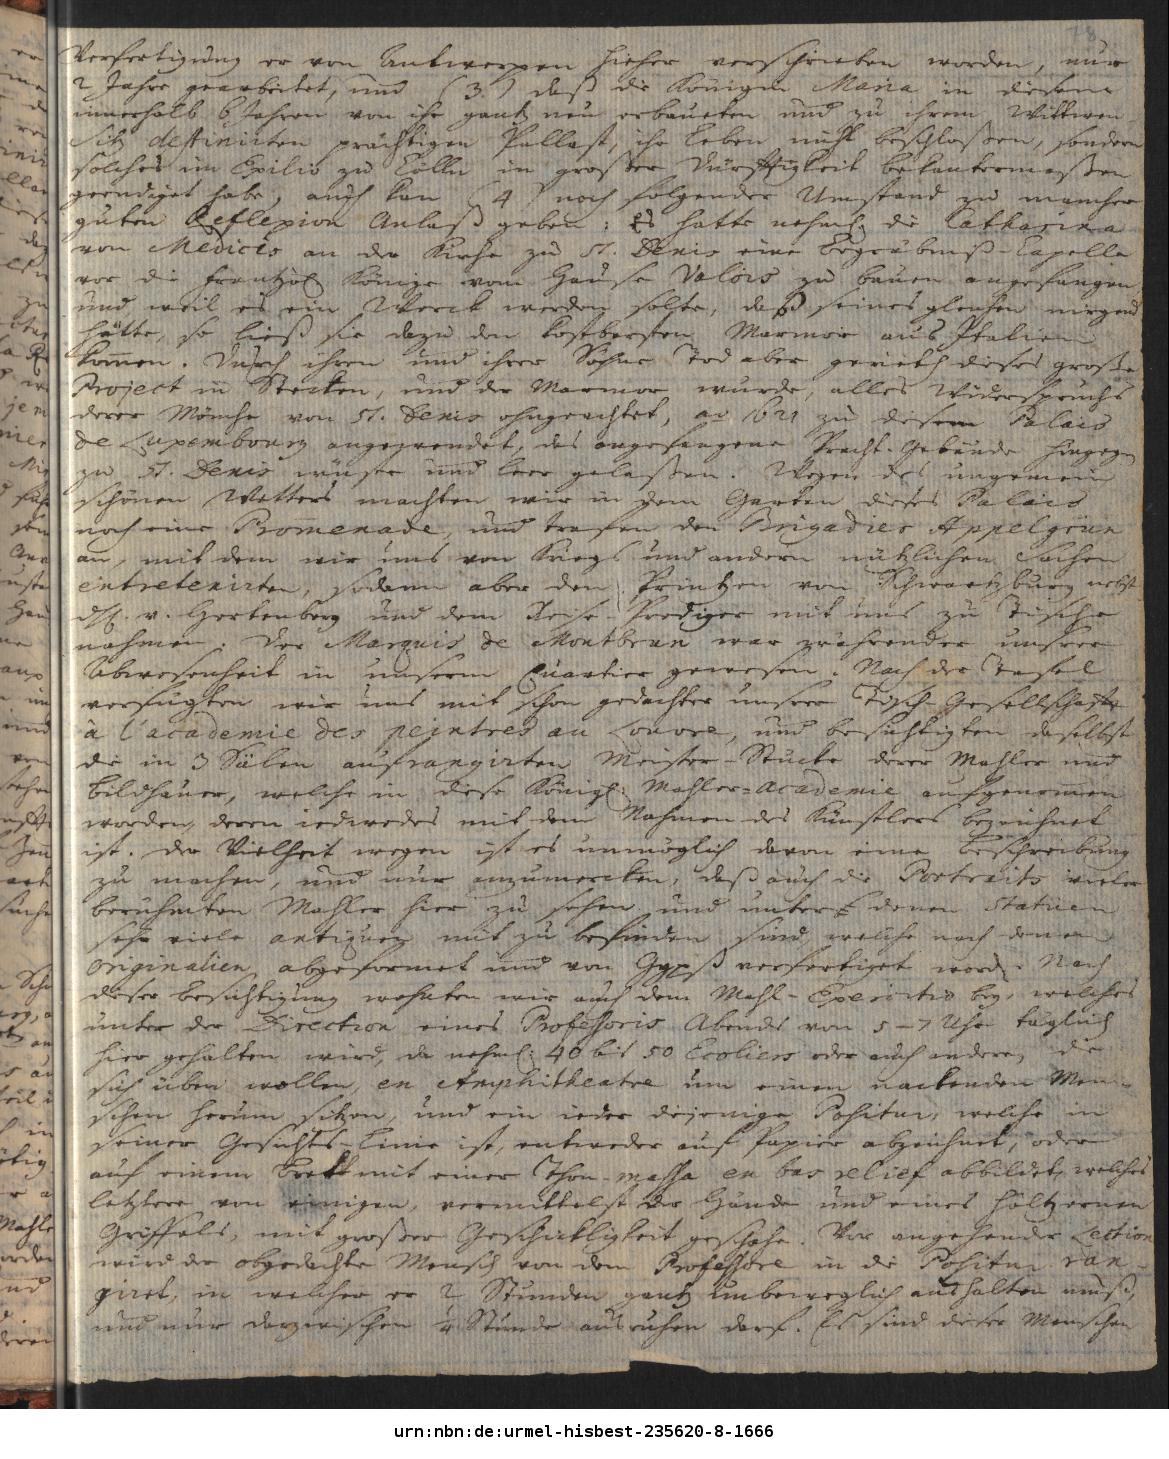 78
Verfertigung er von Antwerpen hieher verschrieben worden, nur
2 Jahre gearbeitet, und (3.) daß die Königin Maria in diesem
innerhalb 6 Jahren von ihr gantz neu erbaueten und zu ihrem Wittwen-
Sitz destinirten prächtigen Pallast, ihr Leben nicht beschloßen, sondern
solches im Exilio zu Cölln in großer Dürfftigkeit bekantermaßen
geendiget habe, auch kan (4) noch folgender Umstand zu mancher
guten Reflexion Anlaß geben; Es hatte nehml. die Catharina
von Medicis an der Kirche zu St. Denis eine Begräbniß-Capelle
vor die frantzös. Könige vom Hause Valois zu bauen angefangen,
und weil es ein Werck werden solte, daß seines gleichen nirgend
hätte, so ließ sie dazu den kostbarsten Marmor aus Italien
kom̅en. Durch ihren und ihrer Söhne Tod aber gerieth dieses große
Project in Stecken, und der Marmor wurde, alles Widerspruchs
derer Mönche von St. Denis ohngeachtet, ao 1621 zu diesem Palais
de Luxembourg angewendet, das angefangene Pracht-Gebäude hingegen
zu St. Denis wüste und leer gelaßen. Wegen des ungemein
schönen Wetters machten wir in dem Garten dieses Palais
noch eine Promenade, und trafen den Brigadier Appelgrün
an, mit dem wir uns von Kriegs und andern nützlichen Sachen
entretenirten, sodann aber den Printzen von Schwartzburg nebst
H. v. Hertenberg und dem Reise-Prediger mit uns zu Tische
nahmen. Der Marquis de Montbrun war währender unsrer
Abwesenheit in unserm Quartier gewesen. Nach der Tafel
verfügten wir uns mit schon gedachter unsrer Tisch-Gesellschafft
à l'academie des peintres au Louvre, und besichtigten daselbst
die in 3 Sälen aufrangirten Meister-Stücke derer Mahler und
Bildhauer, welche in diese Königl. Mahler-Academie aufgenom̅en
worden, deren iedwedes mit dem Nahmen des Künstlers bezeichnet
ist. Der Vielheit wegen ist es unmöglich davon eine Beschreibung
zu machen, und nur anzumercken, daß auch die Portraits vieler
berühmten Mahler hier zu sehen und unter denen Statuen
sehr viele antiquen mit zu befinden sind, welche nach denen
originalien abgeformet und von Gyps verfertiget word. Nach
dieser Besichtigung wohnten wir auch dem Mahl-Exercitio bey, welches
unter der Direction eines Professoris Abends von 5-7 Uhr täglich
hier gehalten wird, da nehml. 40 bis 50 Ecoliers oder auch andere, die
sich üben wollen, en Amphitheatre um einen nackenden Men-
schen herum sitzen, und ein ieder diejenige Positur, welche in
seiner Gesichts-Linie ist, entweder auf Papier abzeichnet, oder
auf einem Brett mit einer Thon-massa en bas relief abbildet, welches
letztere von einigen, vermittelst der Hände und eines höltzernen
Griffels, mit großer Geschicklichkeit geschahe. Vor angehender Lection
wird der obgedachte Mensch von dem Professore in die Positur ran-
giret, in welcher er 2 Stunden gantz unbeweglich aushalten muß,
und nur darzwischen ¼ Stunde ausruhen darf. Es sind dieser Menschen
urn:nbn:de:urmel-hisbest-235620-8-1666